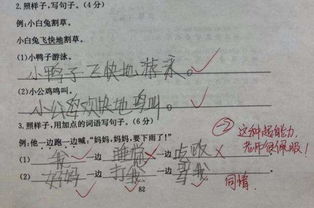 2.照样子,写句子。(4分)
例:小白兔割草。
小白兔飞快地割草。
(1)小鸭子游泳。
小鸭子飞快地游泳。
(2)小公鸡鸣叫。
小公鸡欢快地鸣叫。
3.照样子,用加点的词语写句子。(6分)
例:他一边跑一边喊:“妈妈,妈妈,要下雨了!”
(1) 我 一边 睡觉 一边 吃饭
(2) 妈妈 一边 打我 一边 骂我
这种超能力,
老师佩服!
同情
82